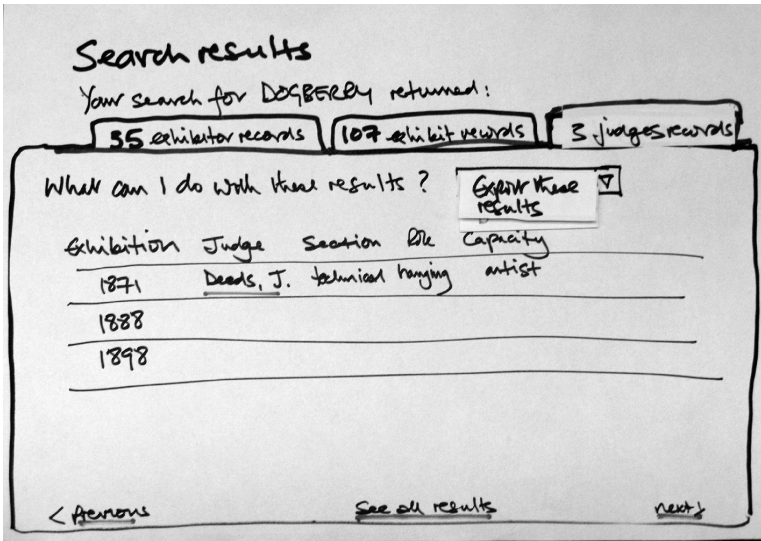 Search results
Your search for DOGBERRY returned:
35 exhibitor records
107 exhibit records
3 judges records
What can I do with these results?
Export these results
Exhibition Judge Section Role Capacity
1871 Deeds, J. technical hanging artist
1888
1898
< previous See all results next >